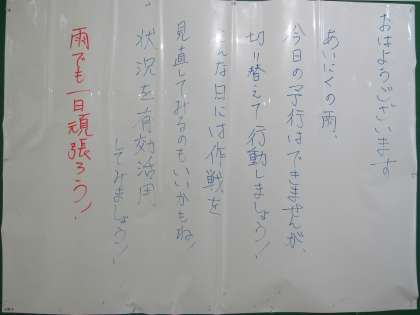 おはようございます
あいにくの雨、
今日の予行はできませんが、
切り替えて行動しましょう！
こんな日には作戦を
見直してみるのもいいかもね！
状況を有効活用
してみましょう！
雨でも一日頑張ろう！